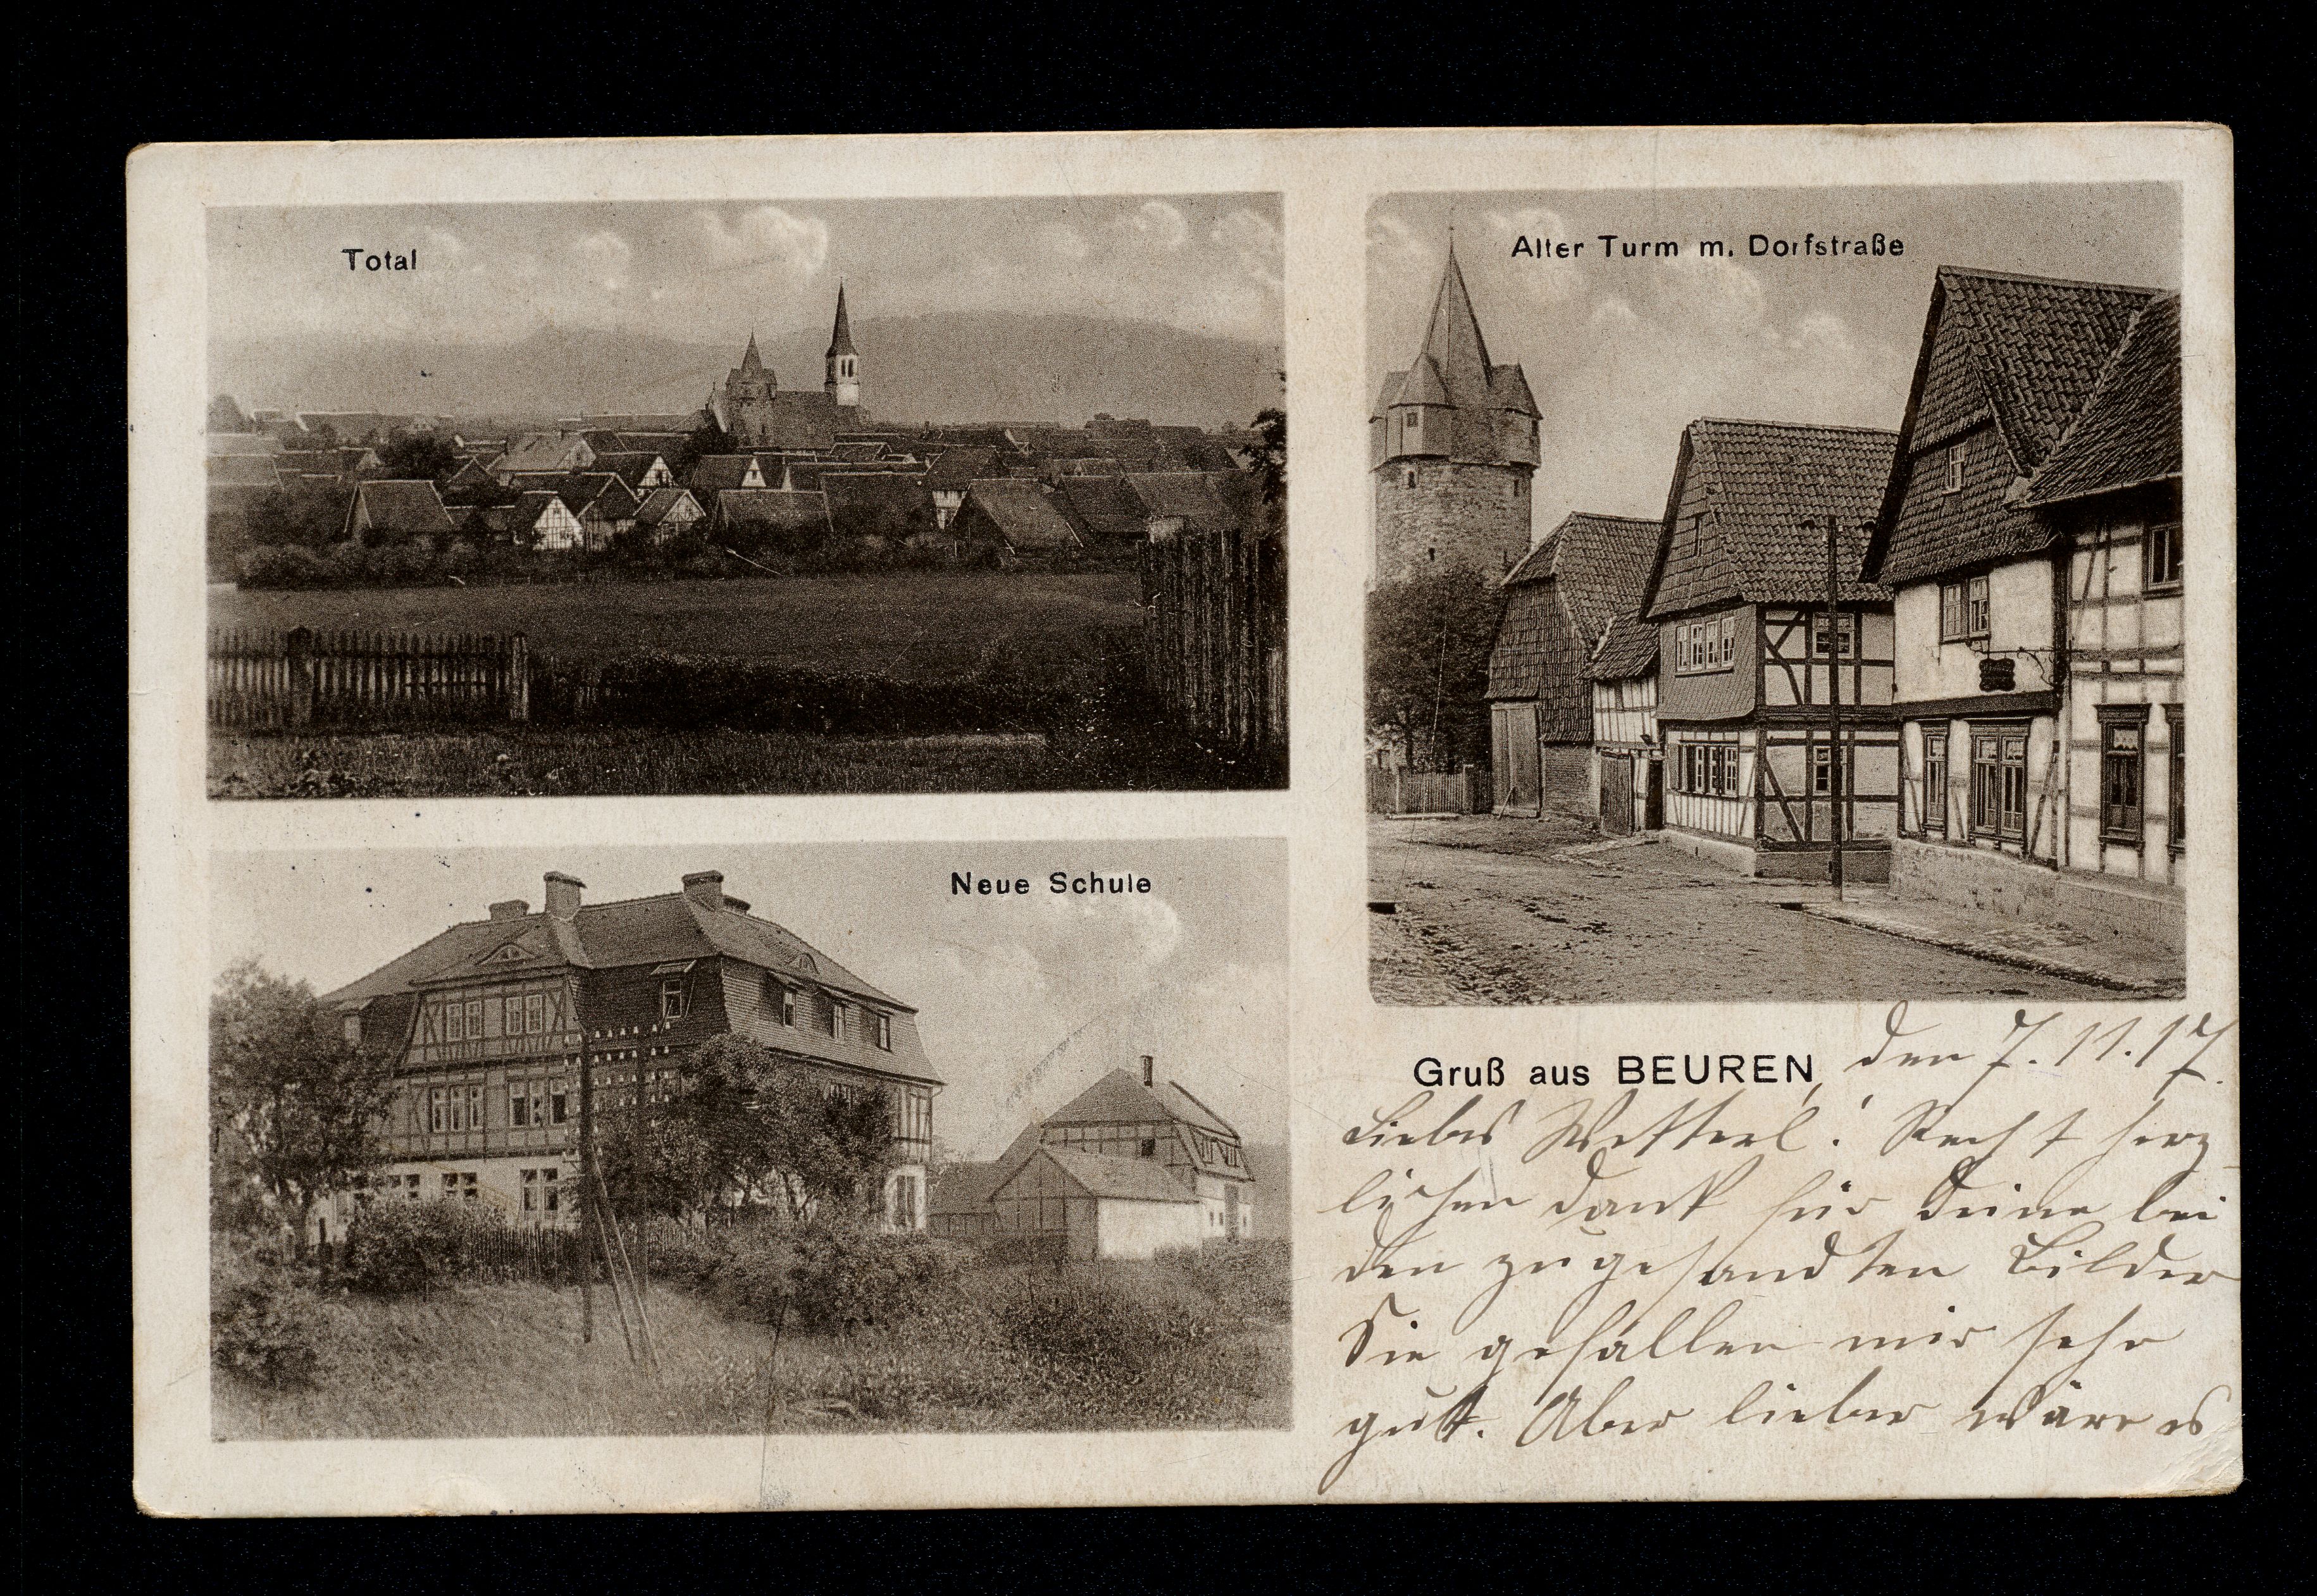 Total
Alter Turm m. Dorfstraße
Neue Schule
Gruß aus BEUREN, den 7.11.17.
Liebes ! Recht herz-
lichen Dank für Deine bei
den zugesandten Bilder
Sie gefallen mir sehr
gut. Aber lieber wäre es